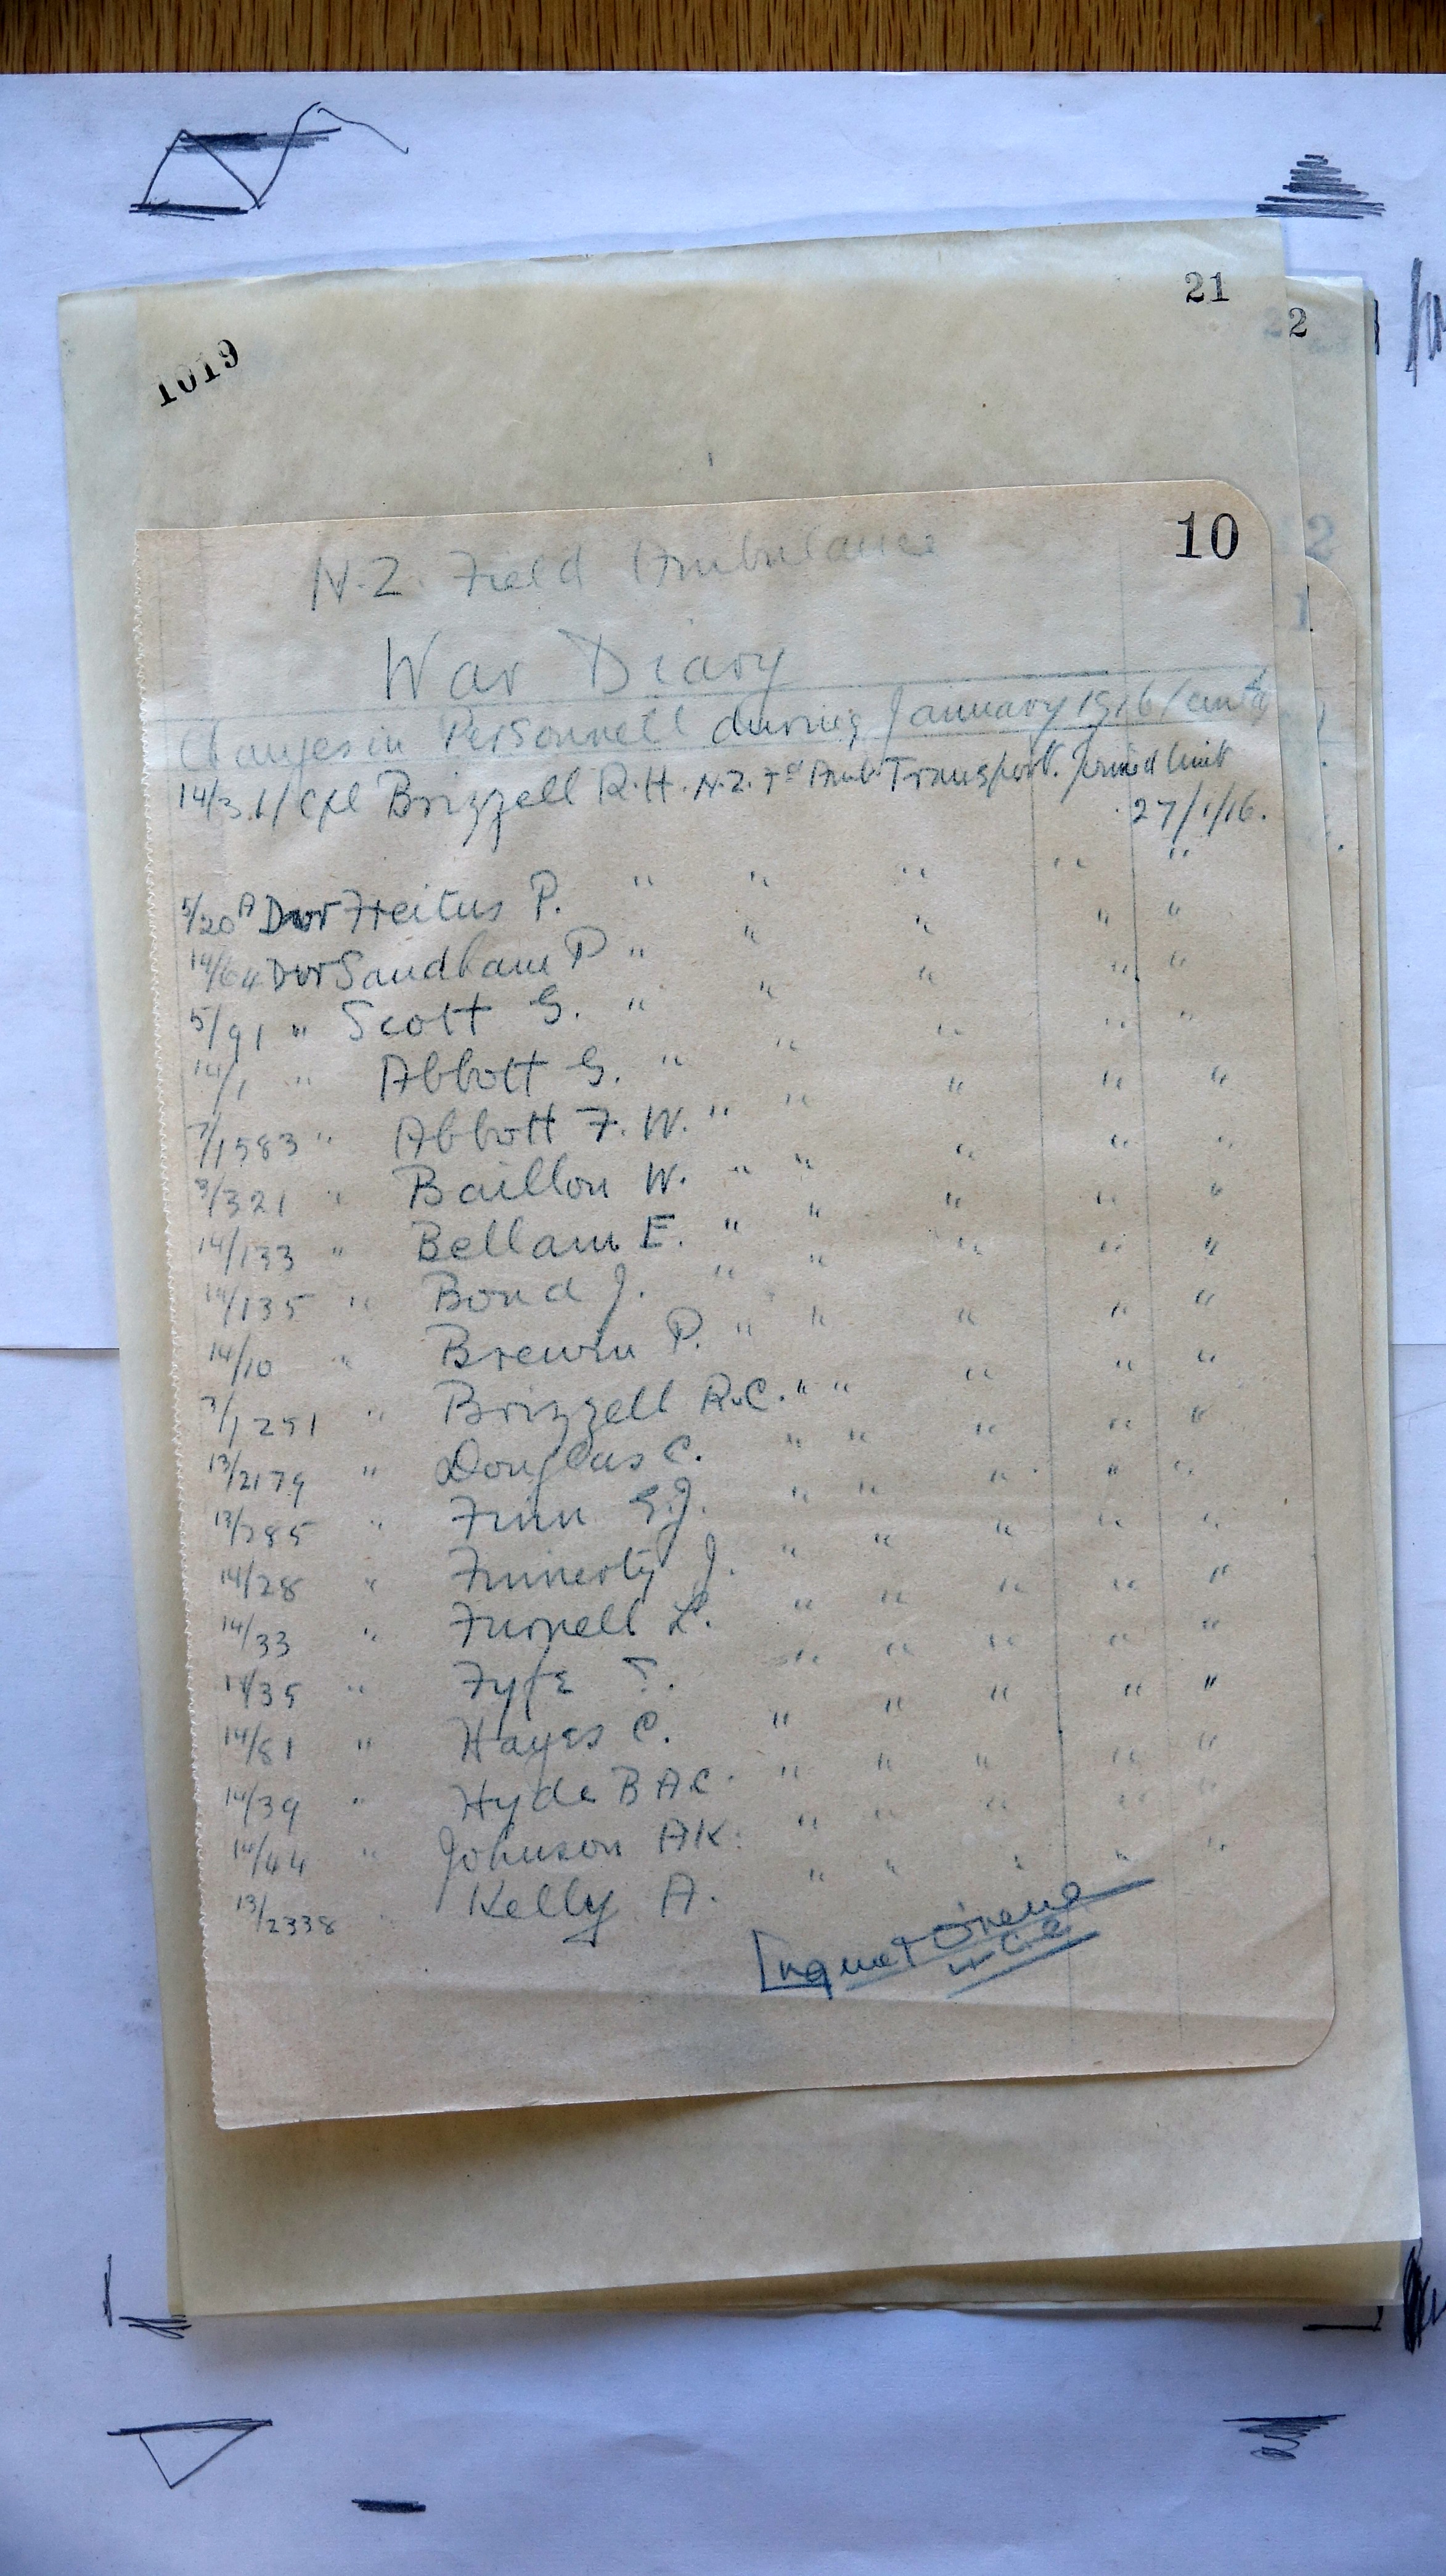 21
2
1019
10
N.Z. Field Ambulance
War Diary
Changes in Personnell during January 1916 (contd
14/3 L/Cpl Brizzell R.H. N.Z. Fd Amb. Transport. Joined Unit
27/1/16.
5/20A Dvr Freitus P. " " " " "
14/64 Dvr Sandham P " " " " "
5/91 " Scott G. " " " " "
14/1 " Abbott G. " " " " "
7/1583 " Abbott F. W. " " " " "
3/321 " Baillon W. " " " " "
14/133 " Bellam E. " " " " "
14/135 " Bond J. " " " " "
14/10 " Brewin P. " " " " "
7/1251 " Brizzell R.C. " " " " "
13/2179 " Douglas C. " " " " "
13/285 " Finn G.J. " " " " "
14/28 " Finnerty J. " " " " "
14/33 " Furnell L. " " " " "
14/35 " Fyfe T. " " " " "
14/81 " Hayes C. " " " " "
14/39 " Hyde B A C. " " " " "
14/44 " Johnson A K. " " " " "
13/2338 " Kelly A. " " " " "